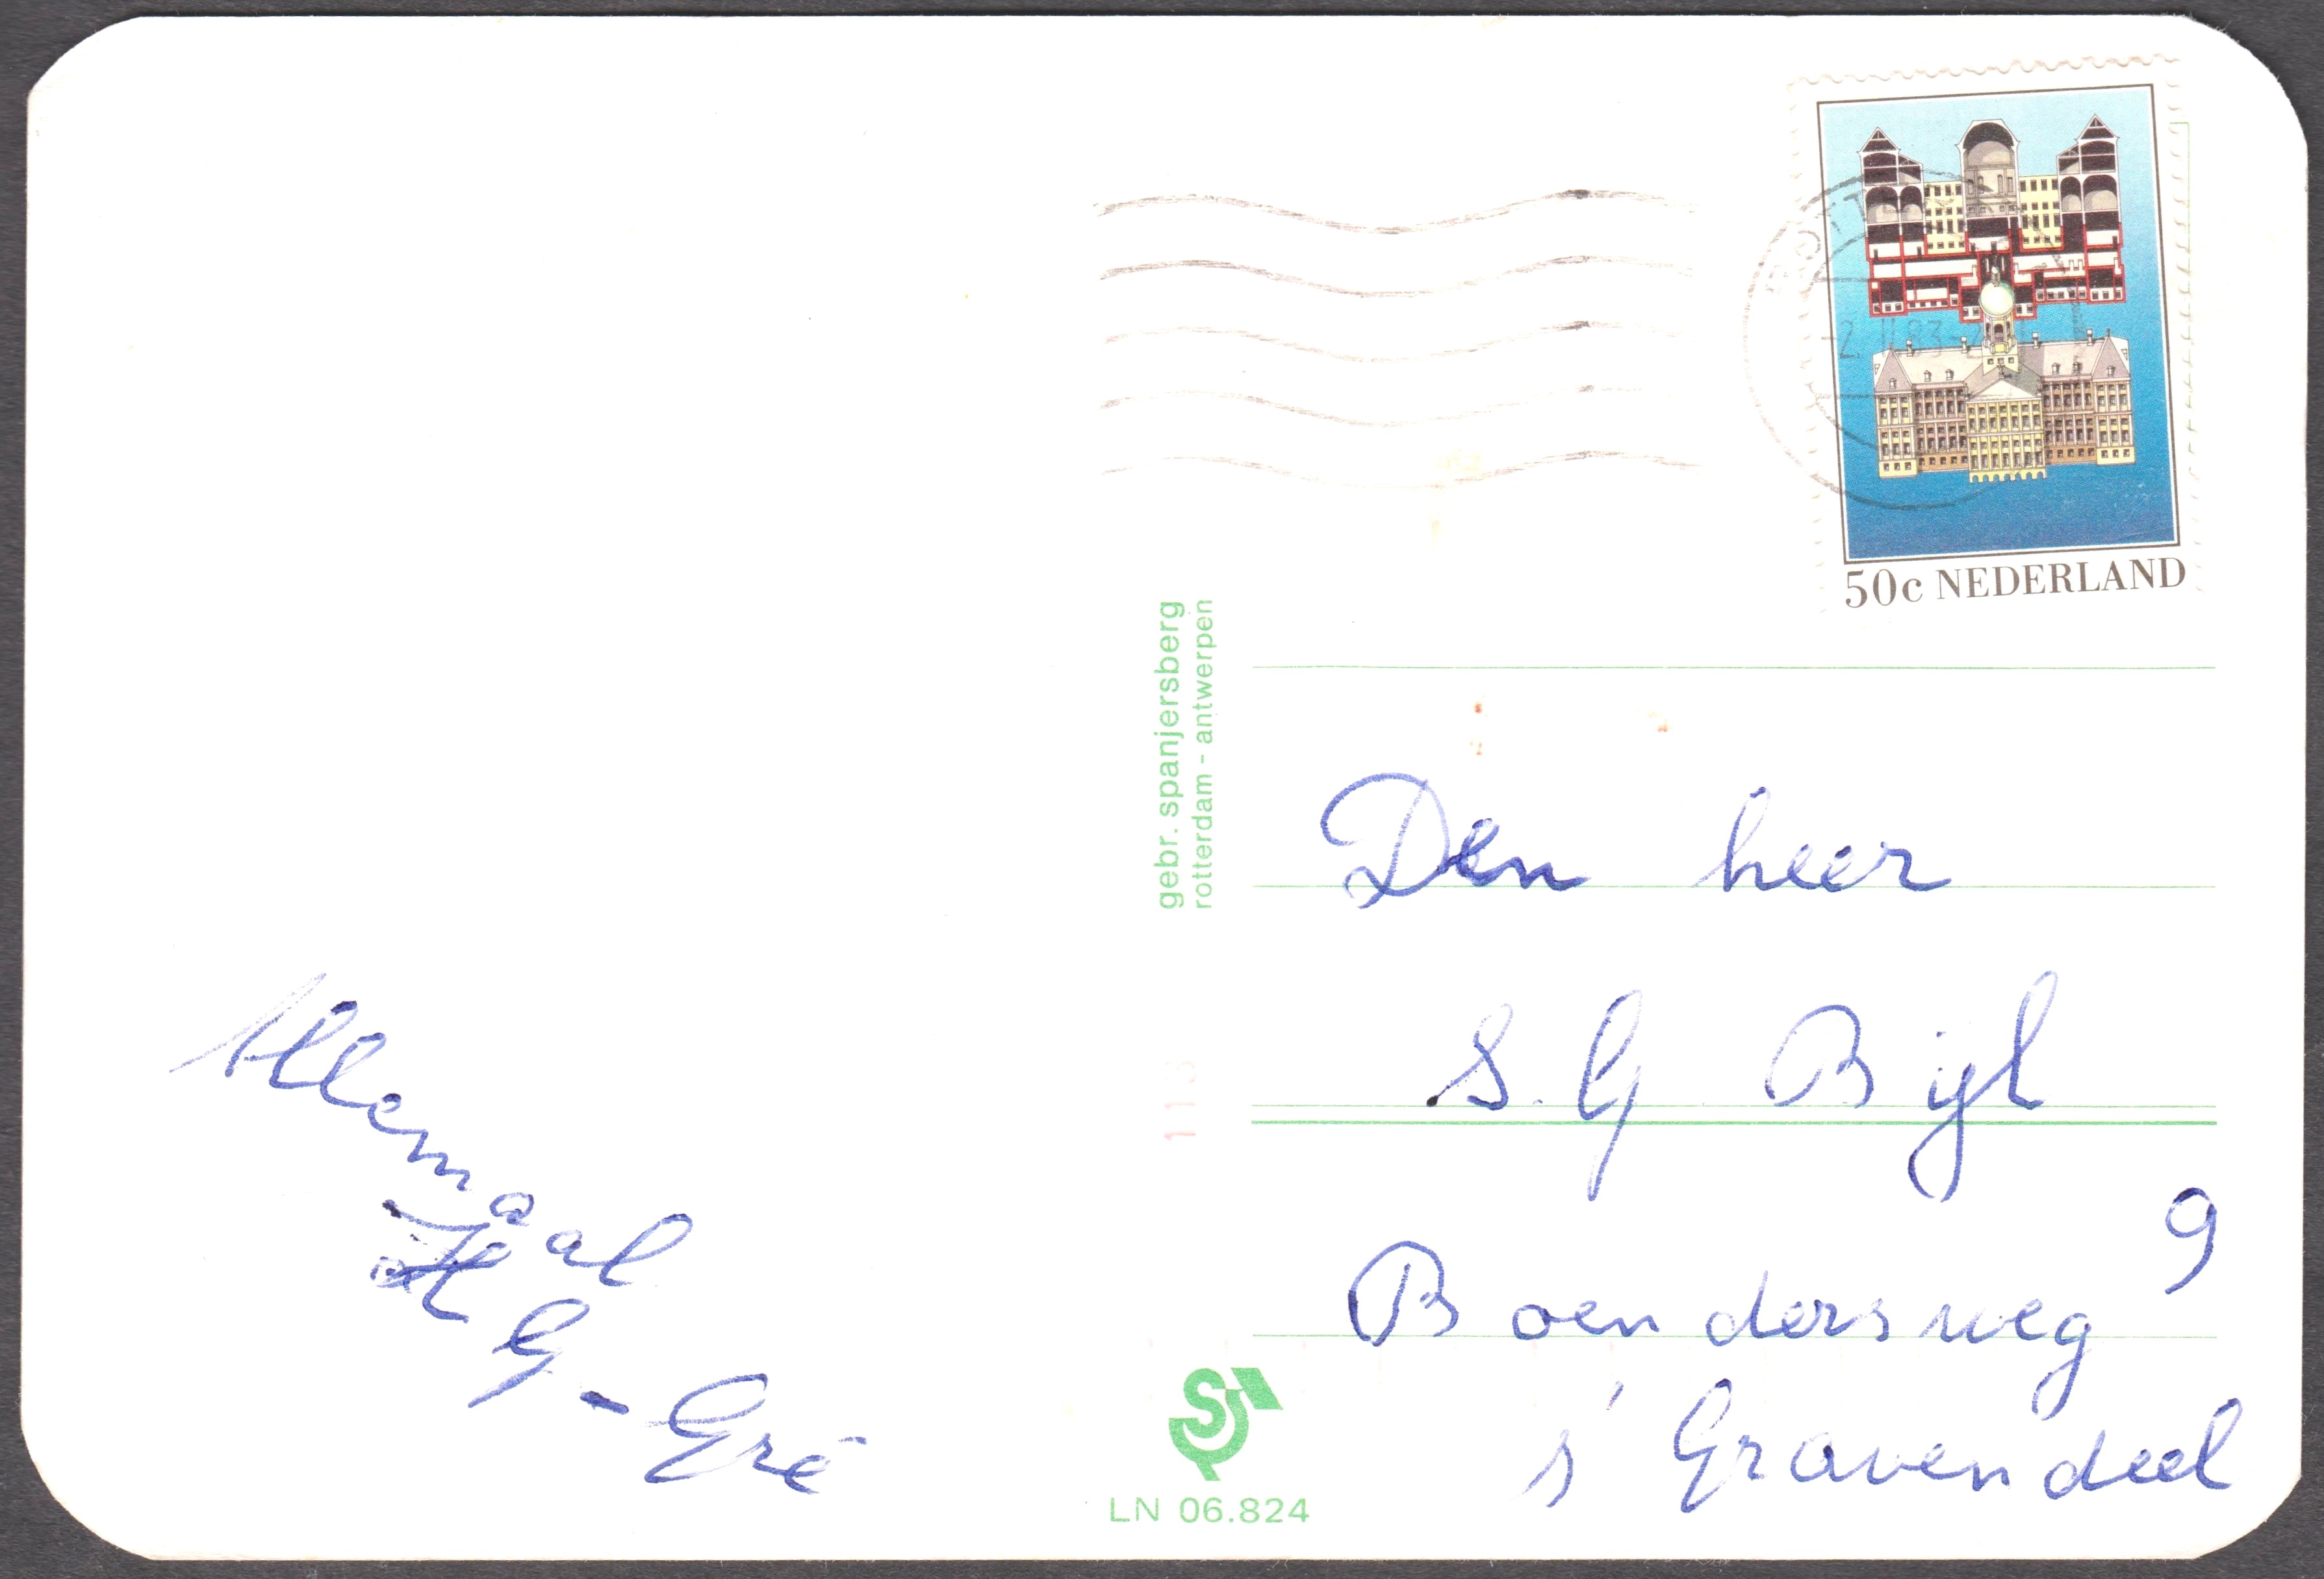 50c NEDERLAND
gebr. spanjersberg
rotterdam - antwerpen
Den heer
S. G Bijl
Boendersweg 9
s' Gravendeel
Allemaal
G - Gré
113
LN 06.824